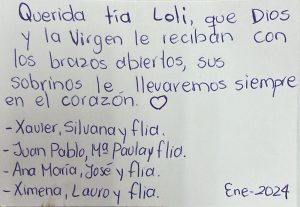 Querida tía Loli, que Dios
y la Virgen le reciban con
los brazos abiertos, sus
sobrinos le llevaremos siempre
en el corazón. ♡
- Xavier, Silvana y flia.
- Juan Pablo, Mª Paula y flia.
- Ana María, José y flia.
- Ximena, Lauro y flia. Ene-2024